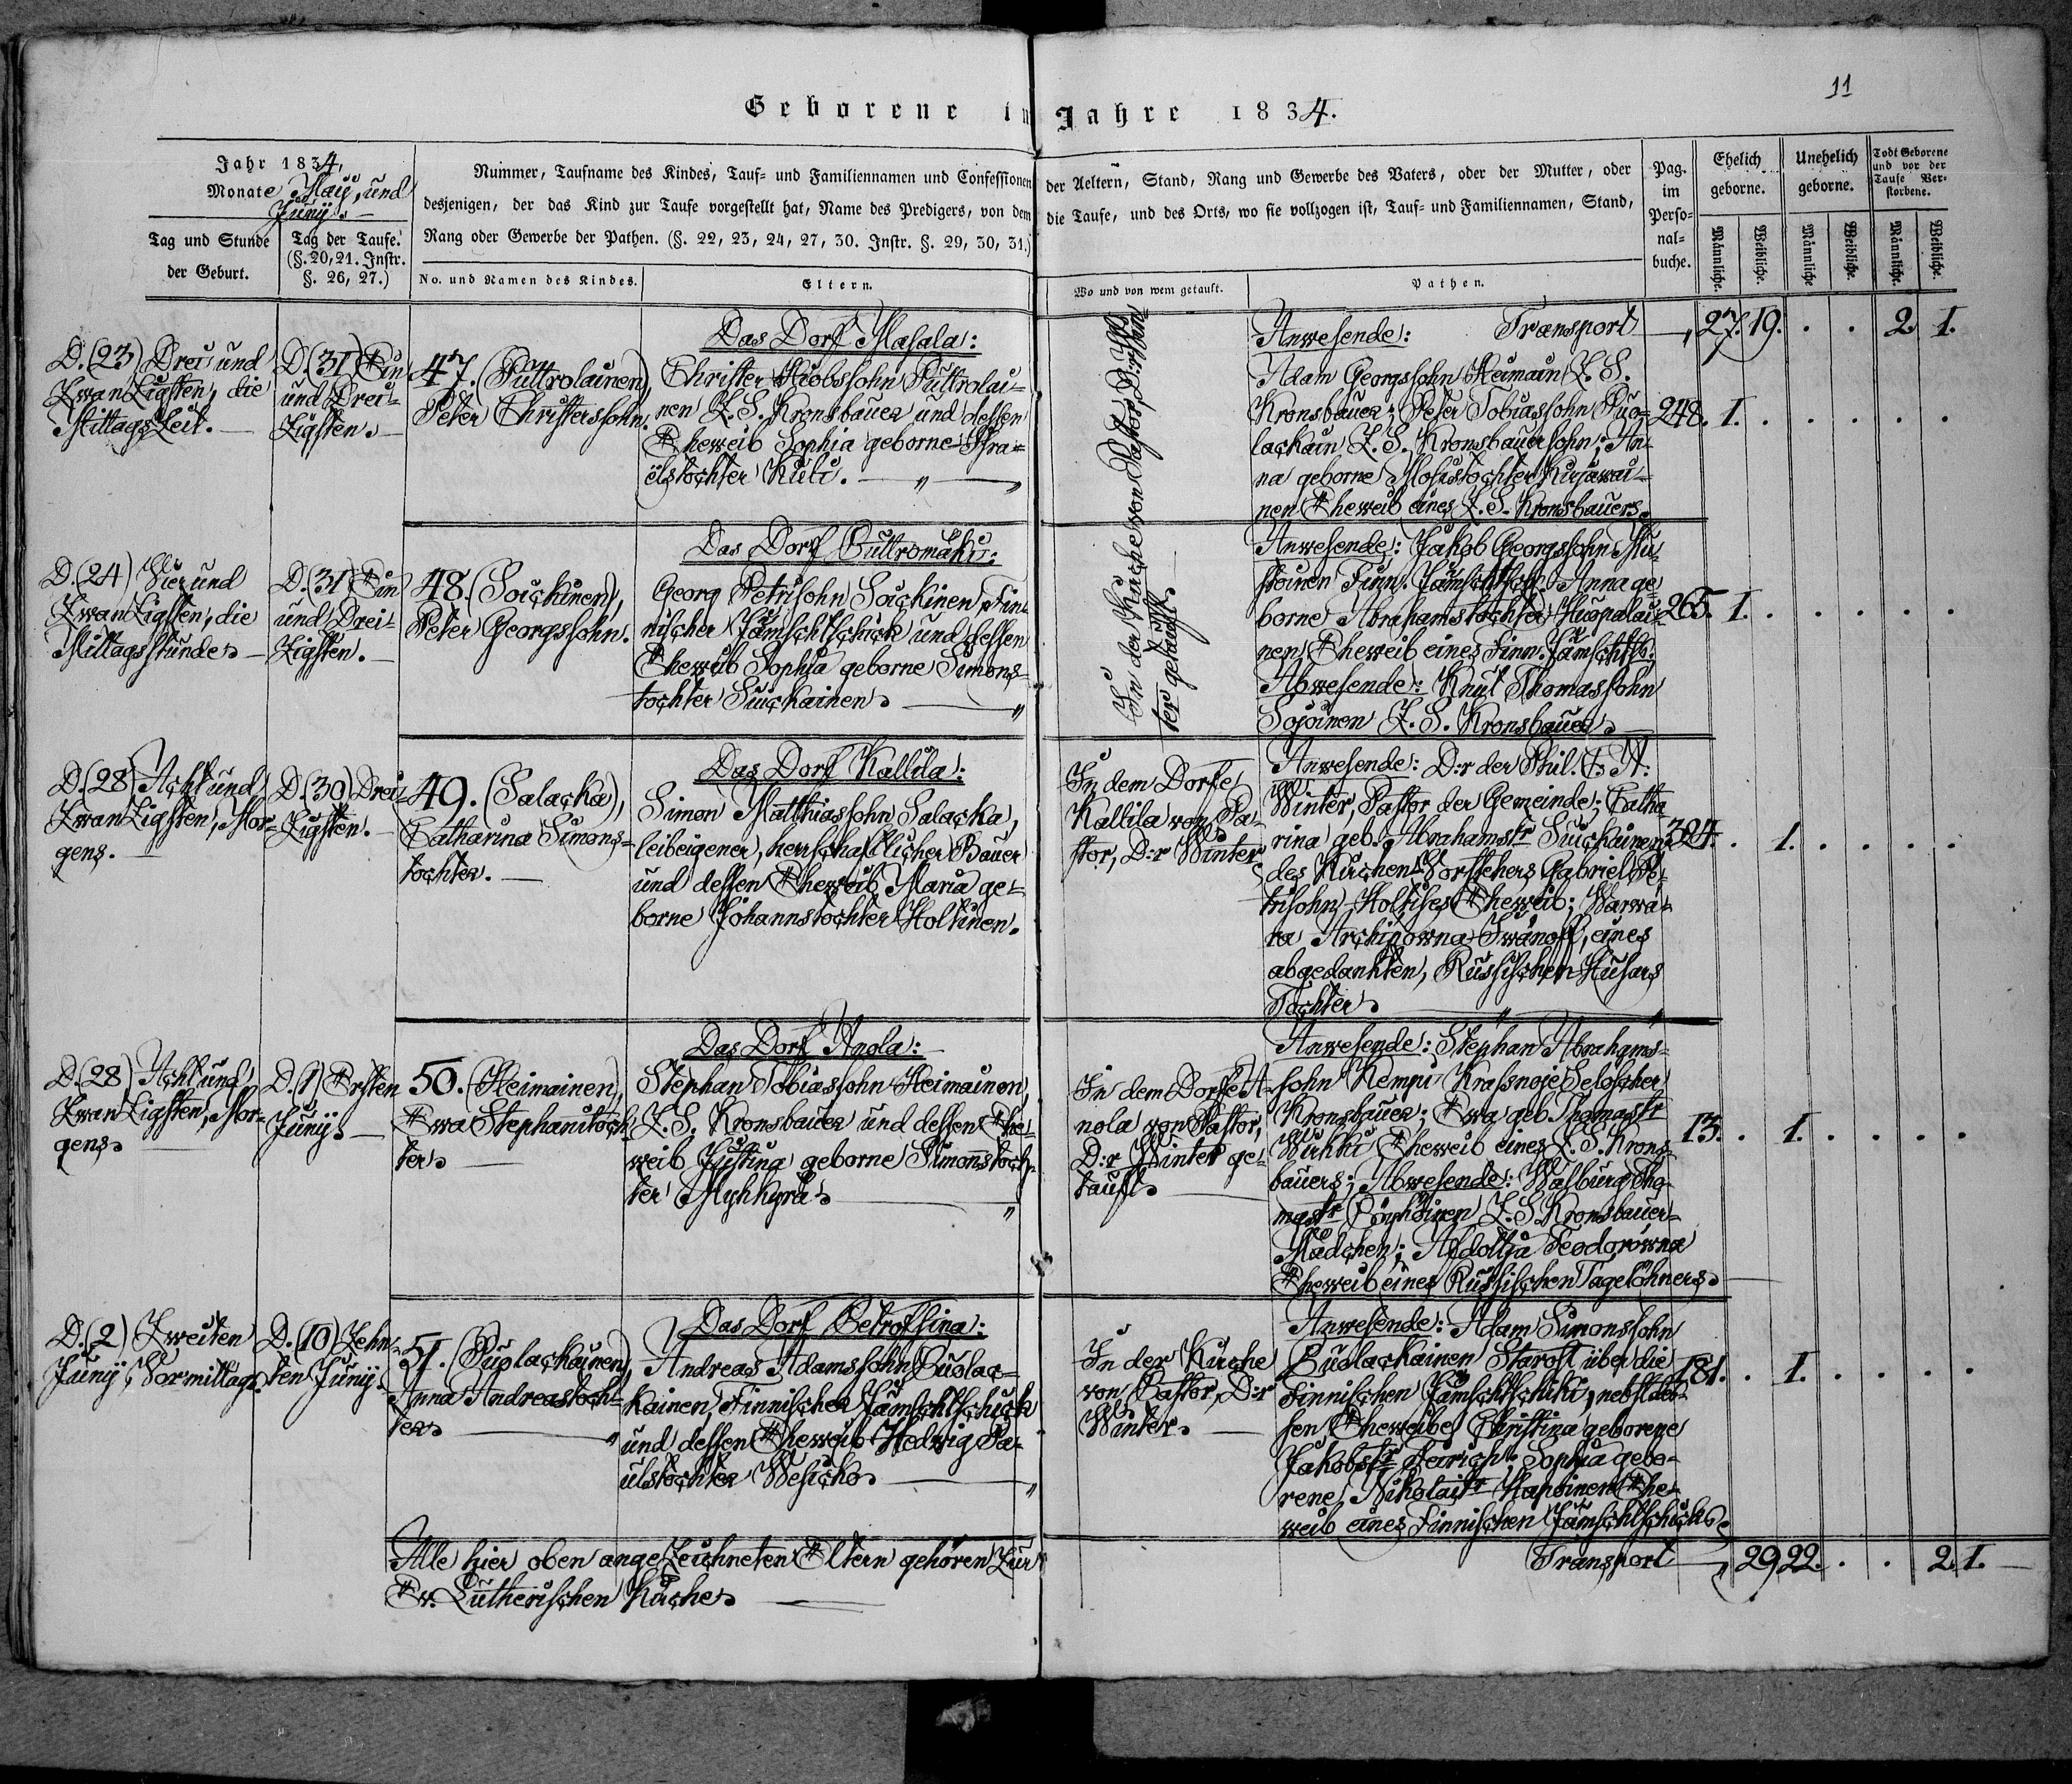 11
Geborene im Jahre 1834.
Jahr 1834.
Monate Maÿ, und
Junÿ.
Tag und Stunde
der Geburt.
Tag der Taufe.
(§. 20, 21. Instr.
§. 26, 27.)
Nummer, Taufname des Kindes, Tauf- und Familiennamen und Confessionen der Aeltern, Stand, Rang und Gewerbe des Vaters, oder der Mutter, oder
desjenigen, der das Kind zur Taufe vorgestellt hat, Name des Predigers, von dem die Taufe, und des Orts, wo sie vollzogen ist, Tauf- und Familiennamen, Stand,
Rang oder Gewerbe der Pathen. (§. 22, 23, 24, 27, 30. Instr. §. 29, 30, 31.)
No. und Namen des Kindes.
Eltern.
Wo und von wem getauft.
Pathen.
Pag.
im
Perso-
nal-
buche.
Ehelich
geborne.
Unehelich
geborne.
Todt Geborene
und vor der
Taufe Ver-
storbene.
Männliche.
Weibliche.
Männliche
Weibliche.
Männliche.
Weibliche.
Transport 27. 19. . . 2. 1.
D. (23) Drei und
Zwanzigsten, die
Mittagszeit.
D. (31) Ein
und Drei-
zigsten.
47. (Puttrolainen),
Peter Christerssohn.
Das Dorf Masala:
Christer Hiobssohn Puttrolai-
nen Z. S. Kronsbauer und dessen
Eheweib Sophia geborne Isra-
elstochter Kuli.
In der Kirche von Pastor, D:r Win-
ter getauft.
Anwesende:
Adam Georgssohn Heimain Z. S.
Kronsbauer; Peter Tobiassohn Puo-
lackain Z. S. Kronsbauersohn; An-
na geborne Mosistochter
nen Eheweib eines Z. S. Kronsbauers.
248. 1. . . . . .
D. (24) Vier und
Zwanzigsten, die
Mittagsstunde.
D. (31) Ein
und Drei-
zigsten.
48. (Soickinen),
Peter Georgssohn.
Das Dorf Puttromäki:
Georg Petrisohn Soickinen Fin-
nischer Jämschtschick und dessen
Eheweib Sophia geborne Simons-
tochter Suickainen.
Anwesende: Jakob Georgssohn Mu-
stoinen Finn. Jämschtsch.: Anna ge-
borne Abrahamstochter Huopalai-
nen Eheweib eines Finn. Jämschtsch.
Abwesende: Knut Thomassohn
Sojoinen Z. S. Kronsbauer.
265. 1. . . . . .
D. (28) Acht und
Zwanzigsten, Mor-
gens.
D. (30) Drei-
zigsten.
49. (Salacka),
Catharina Simons-
tochter.
Das Dorf Kallila:
Simon Matthiassohn Salacka,
leibeigener, herrschaftlicher Bauer
und dessen Eheweib Maria ge-
borne Johannstochter Holtinen.
In dem Dorfe
Kallila von Pa-
stor, D:r Winter
Anwesende: D:r der Phil. E. A.
Winter, Pastor der Gemeinde; Catha
rina geb. Abrahamstr Suickainen
des Kirchen-Vorstehers Gabriel Pe-
trisohn Holtises Eheweib; Warwa-
ra Archipowna Iwanoff, eines
abgedankten, Russischen Husars
Tochter.
324. . 1. . . . .
D. (28) Acht und
Zwanzigsten, Mor-
gens.
D. (1) Ersten
Junÿ.
50. (Heimainen),
Ewa Stephanstoch-
ter.
Das Dorf Anola:
Stephan Tobiassohn Heimainen,
Z. S. Kronsbauer und dessen Ehe-
weib Justina geborne Simonstoch-
ter Myhkyrä.
In dem Dorfe A-
nola von Pastor,
D:r Winter ge-
tauft.
Anwesende: Stephan Abrahams-
sohn Kempi Krasnoje Seloscher
Kronsbauer; Ewa geb. Thomastr
Wirkki Eheweib eines Z. S. Krons-
bauers; Abwesende: Walburg Tho-
mastr Pöyhöinen Z. S. Kronsbauer-
Mädchen; Afdotja Feodorowna
Eheweib eines Russischen Tagelöhners.
13. . 1. . . . .
D. (2) Zweiten
Junÿ, Vormittags.
D. (10) Zehn-
ten Junÿ.
51. (Puolackainen),
Anna Andreastoch-
ter.
Das Dorf Petroffsina:
Andreas Adamssohn Puolac-
kainen, Finnischer Jämschtschick
und dessen Eheweib Hedwig Pa-
ulstochter Wesicko.
In der Kirche
von Pastor, D:r
Winter.
Anwesende: Adam Simonssohn
Puolackainen Starost über die
Finnischen Jämschtschiki, nebst des-
sen Eheweibe Christina geborene
Jakobstr ; Sophia gebo-
rene Nikolaitr Haposinen Ehe-
weib eines Finnischen Jämschtschicks.
181. . 1. . . . .
Alle hier oben angezeichneten Eltern gehören zur
Ev. Lutherischen Kirche.
Transport 29 22. . . 2. 1.